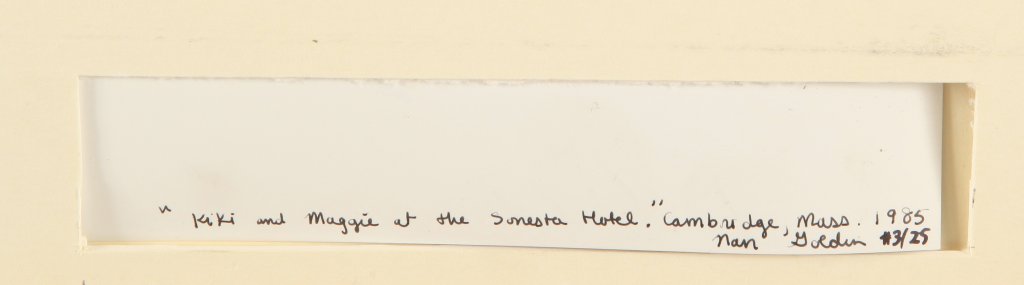 " Kiki and Maggie at the Sonesta Hotel." Cambridge, Mass. 1985
Nan Goldin #3/25